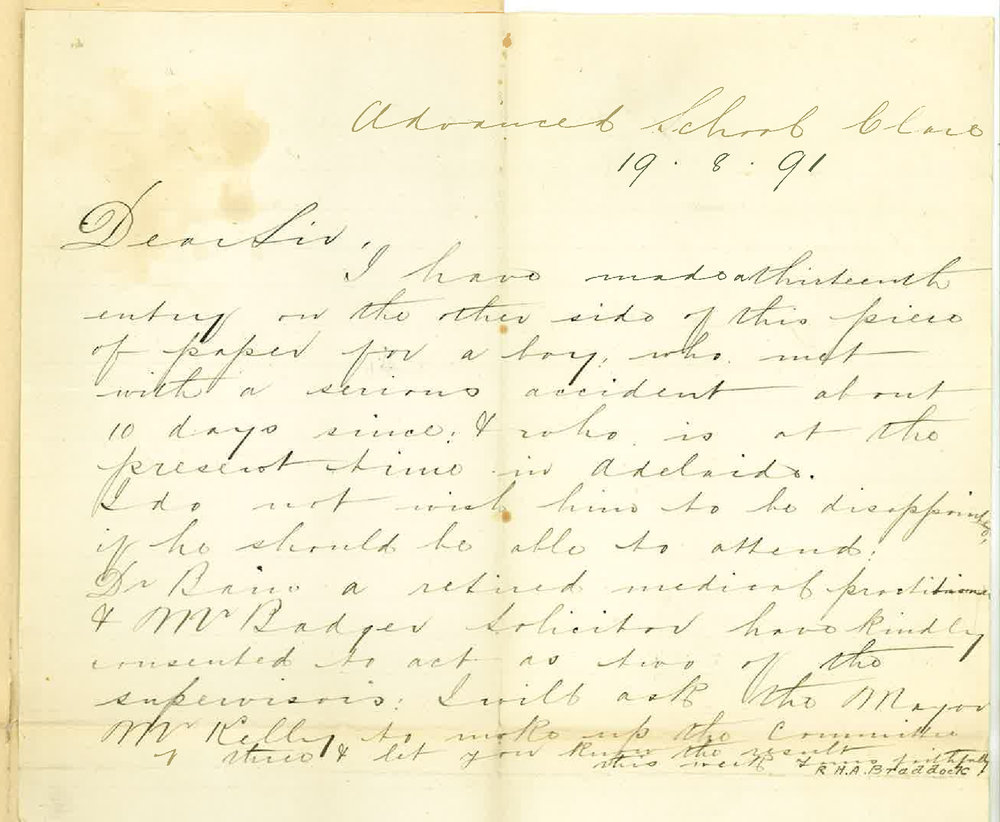 Advanced School Clare
19. 8. 91
Dear Sir,
I have made a thirteenth
entry on the other side of this piece
of paper for a boy, who met
with a serious accident about
10 days since; & who is at the
present time in Adelaide.
I do not wish him to be disappointed,
if he should be able to attend.
Dr Bain a retired medical practitioner
& Mr Badger Solicitor have kindly
consented to act as two of the
supervisors: I will ask the Mayor
Mr Kelly to make up the Committee
of three & let you know the result
this week Yours faithfully
R H.A. Braddock